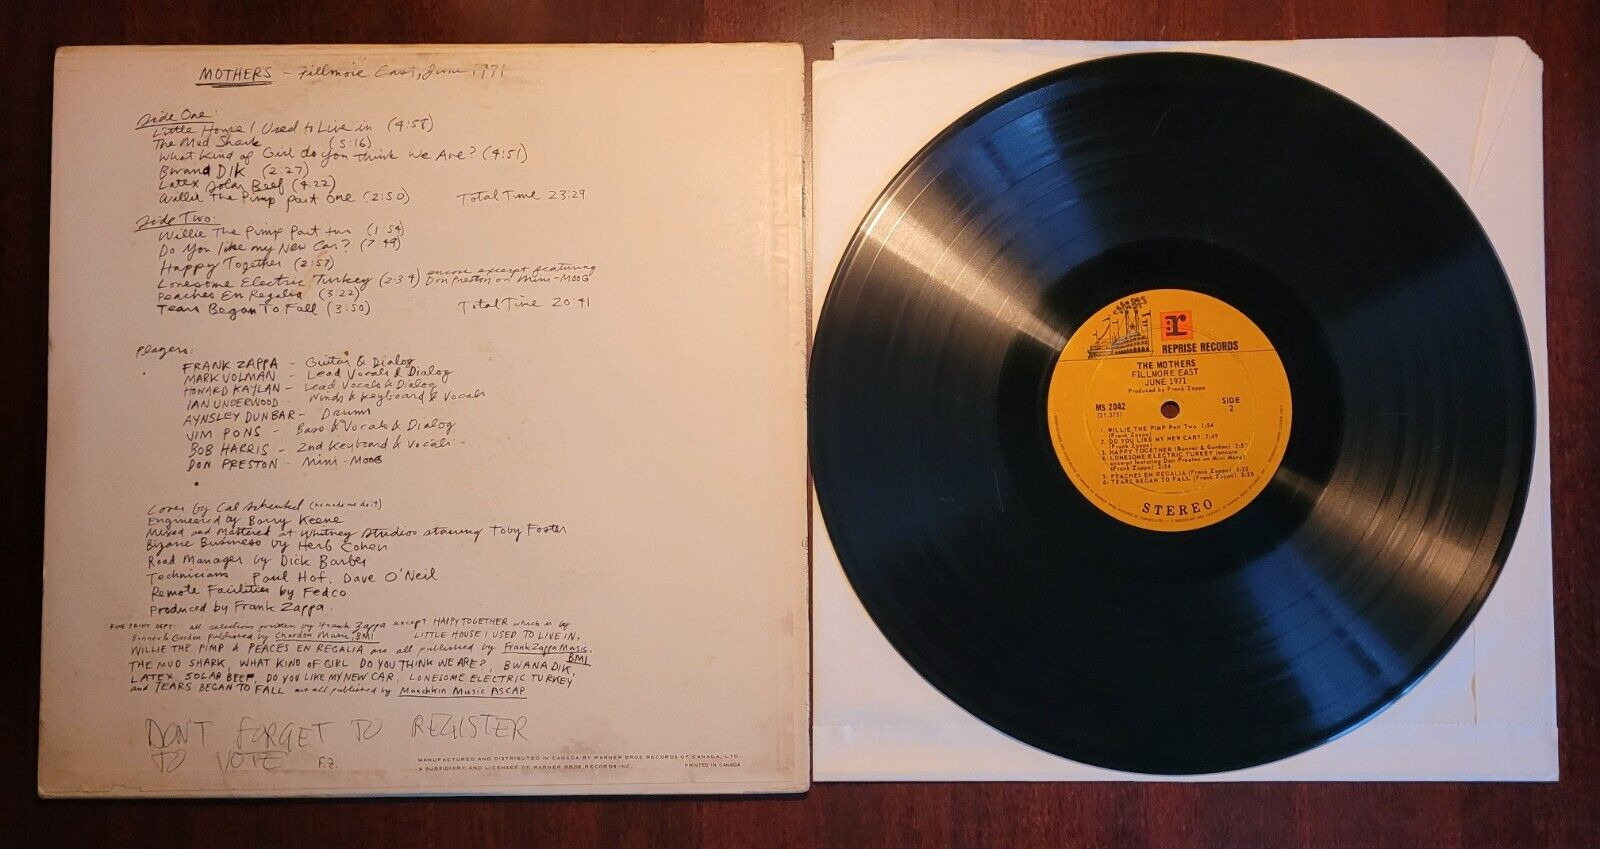 MOTHERS - Fillmore East, June 1971
Side One:
Little House I Used to Live in (4:58)
The Mud Shark (5:16)
What Kind of Girl do you think We Are? (4:51)
Bwana DIK (2:27)
Latex Solar Beef (4:22)
Willie The Pimp part One (2:50) Total Time 23:29
Side Two:
Willie The Pimp Part two (1:54)
Do You like my New Car? (7:49)
Happy Together (2:57)
Lonesome Electric Turkey (2:34) encore excerpt featuring
Don Preston on Mini-MOOG
Peaches En Regalia (3:22)
Tears Began To Fall (3:50) Total Time 20:41
Players:
FRANK ZAPPA - Guitar & Dialog
MARK VOLMAN - Lead Vocals & Dialog
HOWARD KAYLAN - Lead Vocals & Dialog
IAN UNDERWOOD - Winds & Keyboard & Vocals
AYNSLEY DUNBAR - Drums
JIM PONS - Bass & Vocals & Dialog
BOB HARRIS - 2nd Keyboard & Vocals
DON PRESTON - Mini-MOOG
Cover by Cal Schenkel
Engineered by Barry Keene
Mixed and Mastered at Whitney Studios starring Toby Foster
Bizarre Business by Herb Cohen
Road Manager by Dick Barber
Technicians Paul Hof, Dave O'Neil
Remote Facilities by Fedco
Produced by Frank Zappa.
FINE PRINT DEPT: all selections written by Frank Zappa except HAPPY TOGETHER which is by
Bonner & Gordon published by Chardon Music, BMI LITTLE HOUSE I USED TO LIVE IN,
WILLIE THE PIMP & PEACES EN REGALIA are all published by Frank Zappa Music,
BMI
THE MUD SHARK, WHAT KIND OF GIRL DO YOU THINK WE ARE?, BWANA DIK,
LATEX SOLAR BEEF, DO YOU LIKE MY NEW CAR, LONESOME ELECTRIC TURKEY
and TEARS BEGAN TO FALL are all published by Munchkin Music ASCAP
DON'T FORGET TO REGISTER
TO VOTE F.Z.
MANUFACTURED AND DISTRIBUTED IN CANADA BY WARNER BROS. RECORDS OF CANADA, LTD.
A SUBSIDIARY AND LICENSEE OF WARNER BROS. RECORDS INC. PRINTED IN CANADA
r
REPRISE RECORDS
THE MOTHERS
FILLMORE EAST
JUNE 1971
Produced by Frank Zappa
MS 2042
(31,273)
SIDE
2
1. WILLIE THE PIMP Part Two 1:54
(Frank Zappa)
2. DO YOU LIKE MY NEW CAR? 7:49
(Frank Zappa)
3. HAPPY TOGETHER (Bonner & Gordon) 2:57
4. LONESOME ELECTRIC TURKEY (encore
excerpt featuring Don Preston on Mini Moog)
(Frank Zappa) 2:34
5. PEACHES EN REGALIA (Frank Zappa) 3:22
6. TEARS BEGAN TO FALL (Frank Zappa) 3:50
STEREO